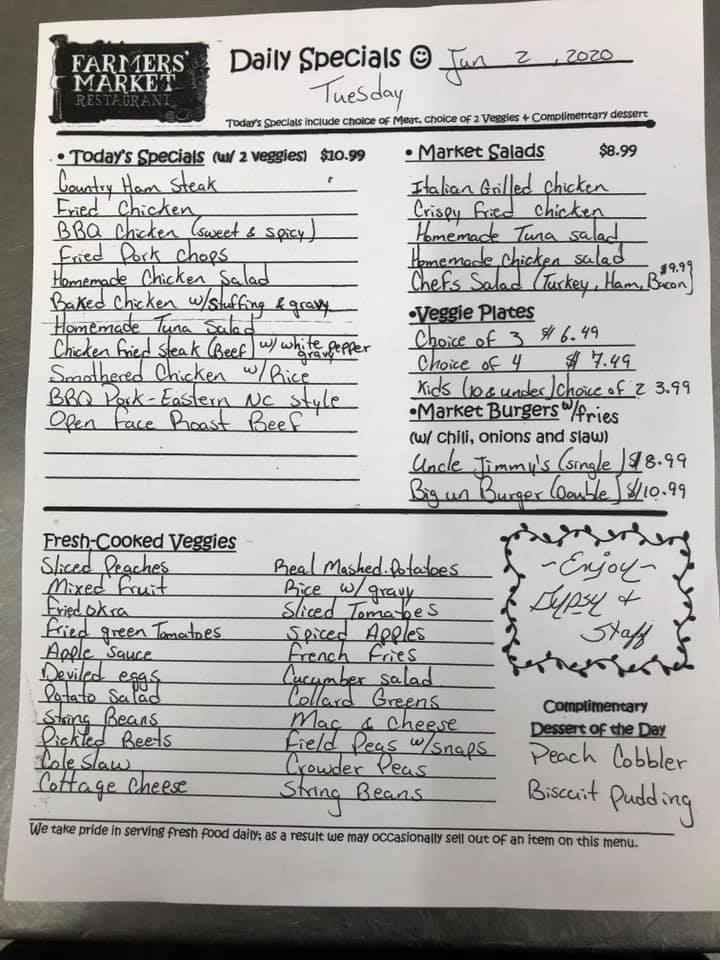 FARMERS'
MARKET
RESTAURANT
Daily Specials ☺ Jun 2, 2020
Tuesday
Today's Specials include choice of Meat, choice of 2 Veggies & Complimentary dessert
• Today's Specials (w/ 2 veggies) $10.99
Country Ham Steak
Fried Chicken
BBQ Chicken (sweet & spicy)
Fried Pork Chops
Homemade Chicken Salad
Baked Chicken w/stuffing & gravy
Homemade Tuna Salad
Chicken Fried Steak (Beef) w/ white pepper gravy
Smothered Chicken w/Rice
BBQ Pork - Eastern NC Style
Open Face Roast Beef
• Market Salads $8.99
Italian Grilled Chicken
Crispy Fried Chicken
Homemade Tuna salad
Homemade Chicken salad
$9.99
Chefs Salad (Turkey, Ham, Bacon)
•Veggie Plates
Choice of 3 $6.49
Choice of 4 $7.49
Kids (10 & under) Choice of 2 3.99
•Market Burgers w/fries
(w/ chili, onions and slaw)
Uncle Jimmy's (single) $8.99
Big un Burger (Double) $10.99
Fresh-Cooked Veggies
Sliced Peaches
Mixed Fruit
Fried Okra
Fried green Tomatoes
Apple Sauce
Deviled eggs
Potato Salad
String Beans
Pickled Beets
Cole Slaw
Cottage Cheese
Real Mashed Potatoes
Rice w/gravy
Sliced Tomatoes
Spiced Apples
French Fries
Cucumber salad
Collard Greens
Mac & Cheese
Field Peas w/snaps
Crowder Peas
String Beans
~Enjoy~
Gypsy &
Staff
Complimentary
Dessert of the Day
Peach Cobbler
Biscuit Pudding
We take pride in serving fresh food daily; as a result we may occasionally sell out of an item on this menu.